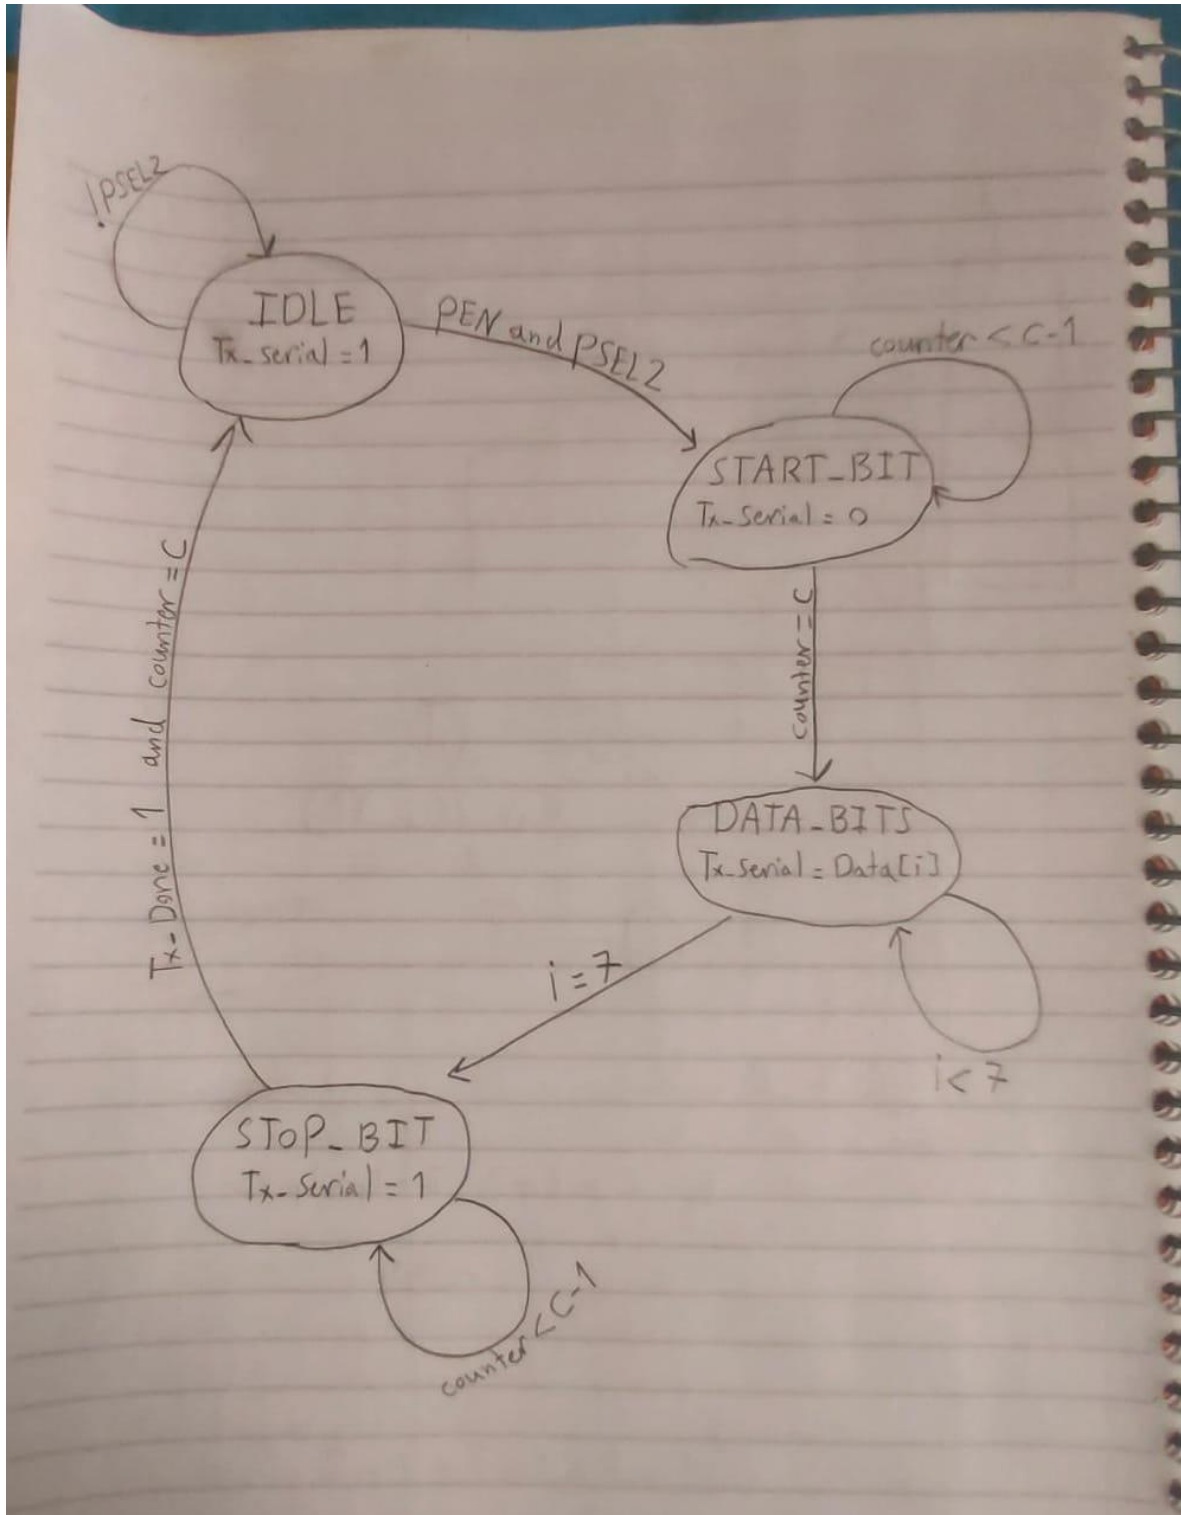 !PSEL2
IDLE
Tx_serial = 1
PEN and PSEL2
counter < C-1
START_BIT
Tx_serial = 0
counter = C
DATA_BITS
Tx_serial = Data[i]
i < 7
i = 7
STOP_BIT
Tx_serial = 1
counter < C-1
Tx_Done = 1 and counter = C